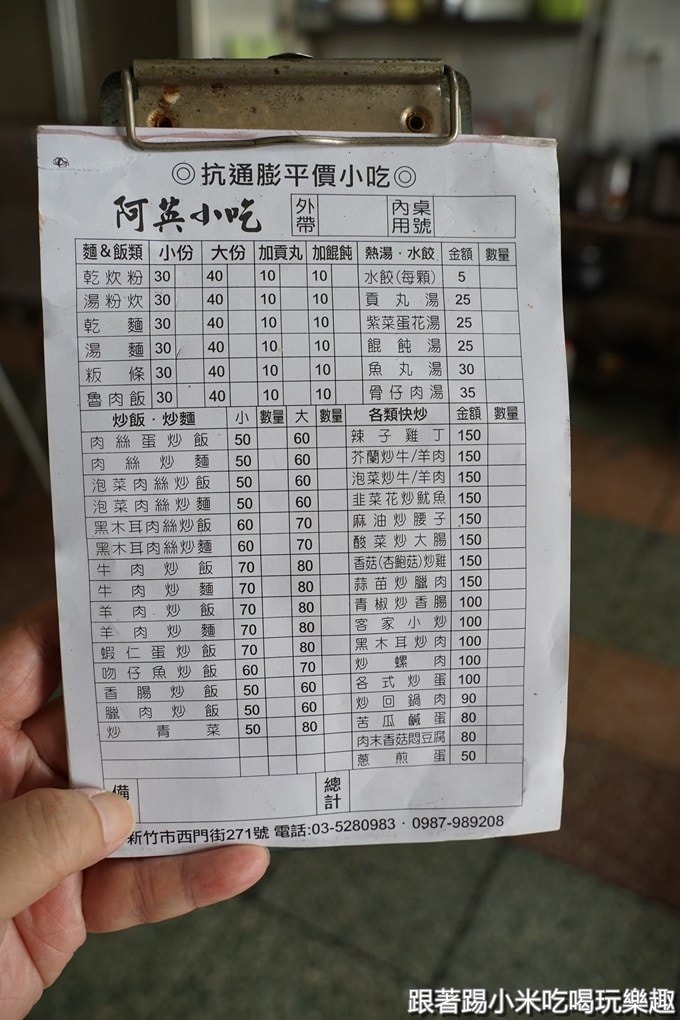 ◎抗通膨平價小吃◎
阿英小吃 外帶 內用 桌號
麵&飯類 小份 大份 加貢丸 加餛飩 熱湯·水餃 金額 數量
乾炊粉 30 40 10 10 水餃(每顆) 5
湯粉炊 30 40 10 10 貢丸湯 25
乾麵 30 40 10 10 紫菜蛋花湯 25
湯麵 30 40 10 10 餛飩湯 25
粄條 30 40 10 10 魚丸湯 30
魯肉飯 30 40 10 10 骨仔肉湯 35
炒飯·炒麵 小 數量 大 數量 各類快炒 金額 數量
肉絲蛋炒飯 50 60 辣子雞丁 150
肉絲炒麵 50 60 芥蘭炒牛/羊肉 150
泡菜肉絲炒飯 50 60 泡菜炒牛/羊肉 150
泡菜肉絲炒麵 50 60 韭菜花炒魷魚 150
黑木耳肉絲炒飯 60 70 麻油炒腰子 150
黑木耳肉絲炒麵 60 70 酸菜炒大腸 150
牛肉炒飯 70 80 香菇(杏鮑菇)炒雞 150
牛肉炒麵 70 80 蒜苗炒臘肉 150
羊肉炒飯 70 80 青椒炒香腸 100
羊肉炒麵 70 80 客家小炒 100
蝦仁蛋炒飯 70 80 黑木耳炒肉 100
吻仔魚炒飯 60 70 炒螺肉 100
香腸炒飯 50 60 各式炒蛋 100
臘肉炒飯 50 60 炒回鍋肉 90
炒青菜 50 80 苦瓜鹹蛋 80
肉末香菇悶豆腐 80
蔥煎蛋 50
備 總計
新竹市西門街271號 電話:03-5280983·0987-989208
跟著踢小米吃喝玩樂趣